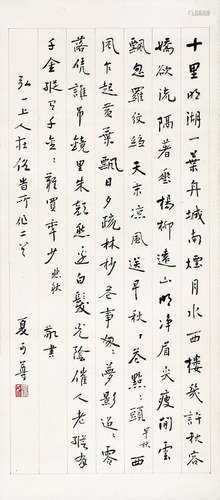 十里明湖一葉舟城南煙月水西樓幾許秋容
嬌欲流隔著垂楊柳遠山明淨眉尖瘦閒雲
飄忽羅紋縐天末涼風送早秋秋花點〻頭 早秋 西
風乍起黃葉飄日夕疏林杪花事匆〻夢影迢〻零
落憑誰弔鏡裏朱顏愁邊白髮光陰催人老縱有
千金縱有千金〻〻難買年少 悲秋 敬書
弘一上人在俗時所作二首
夏丏尊